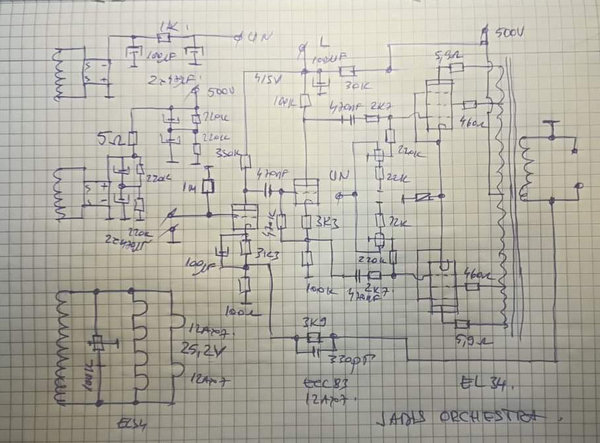 1K
UN
100µF
L
500V
2x47µF
500V
415V
100µF
30K
5,9Ω
220K
220K
100K
470nF
2K7
460Ω
5Ω
350K
470nF
UN
220K
22K
220K
1M
470K
3K3
22K
220K
100µF
3K3
100K
220K
2K7
470nF
460Ω
100Ω
3K9
5,9Ω
330pF
12AX7
25,2V
12AX7
100K
ECC83
12AX7
EL34
EL34.
JADIS ORCHESTRA.